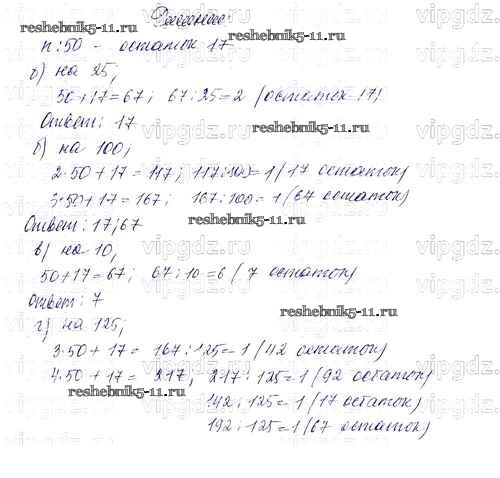 Решение:
n:50 - остаток 17
а) на 25;
50+17=67; 67:25=2 (остаток 17)
Ответ: 17
б) на 100;
2·50+17=117; 117:100=1 (17 остаток)
3·50+17=167; 167:100=1 (67 остаток)
Ответ: 17; 67
в) на 10;
50+17=67; 67:10=6 (7 остаток)
Ответ: 7
г) на 125;
3·50+17= 167:125=1 (42 остаток)
4·50+17= 217, 217:125=1 (92 остаток)
142:125=1 (17 остаток)
192:125=1 (67 остаток)
reshebnik5-11.ru
vipgdz.ru